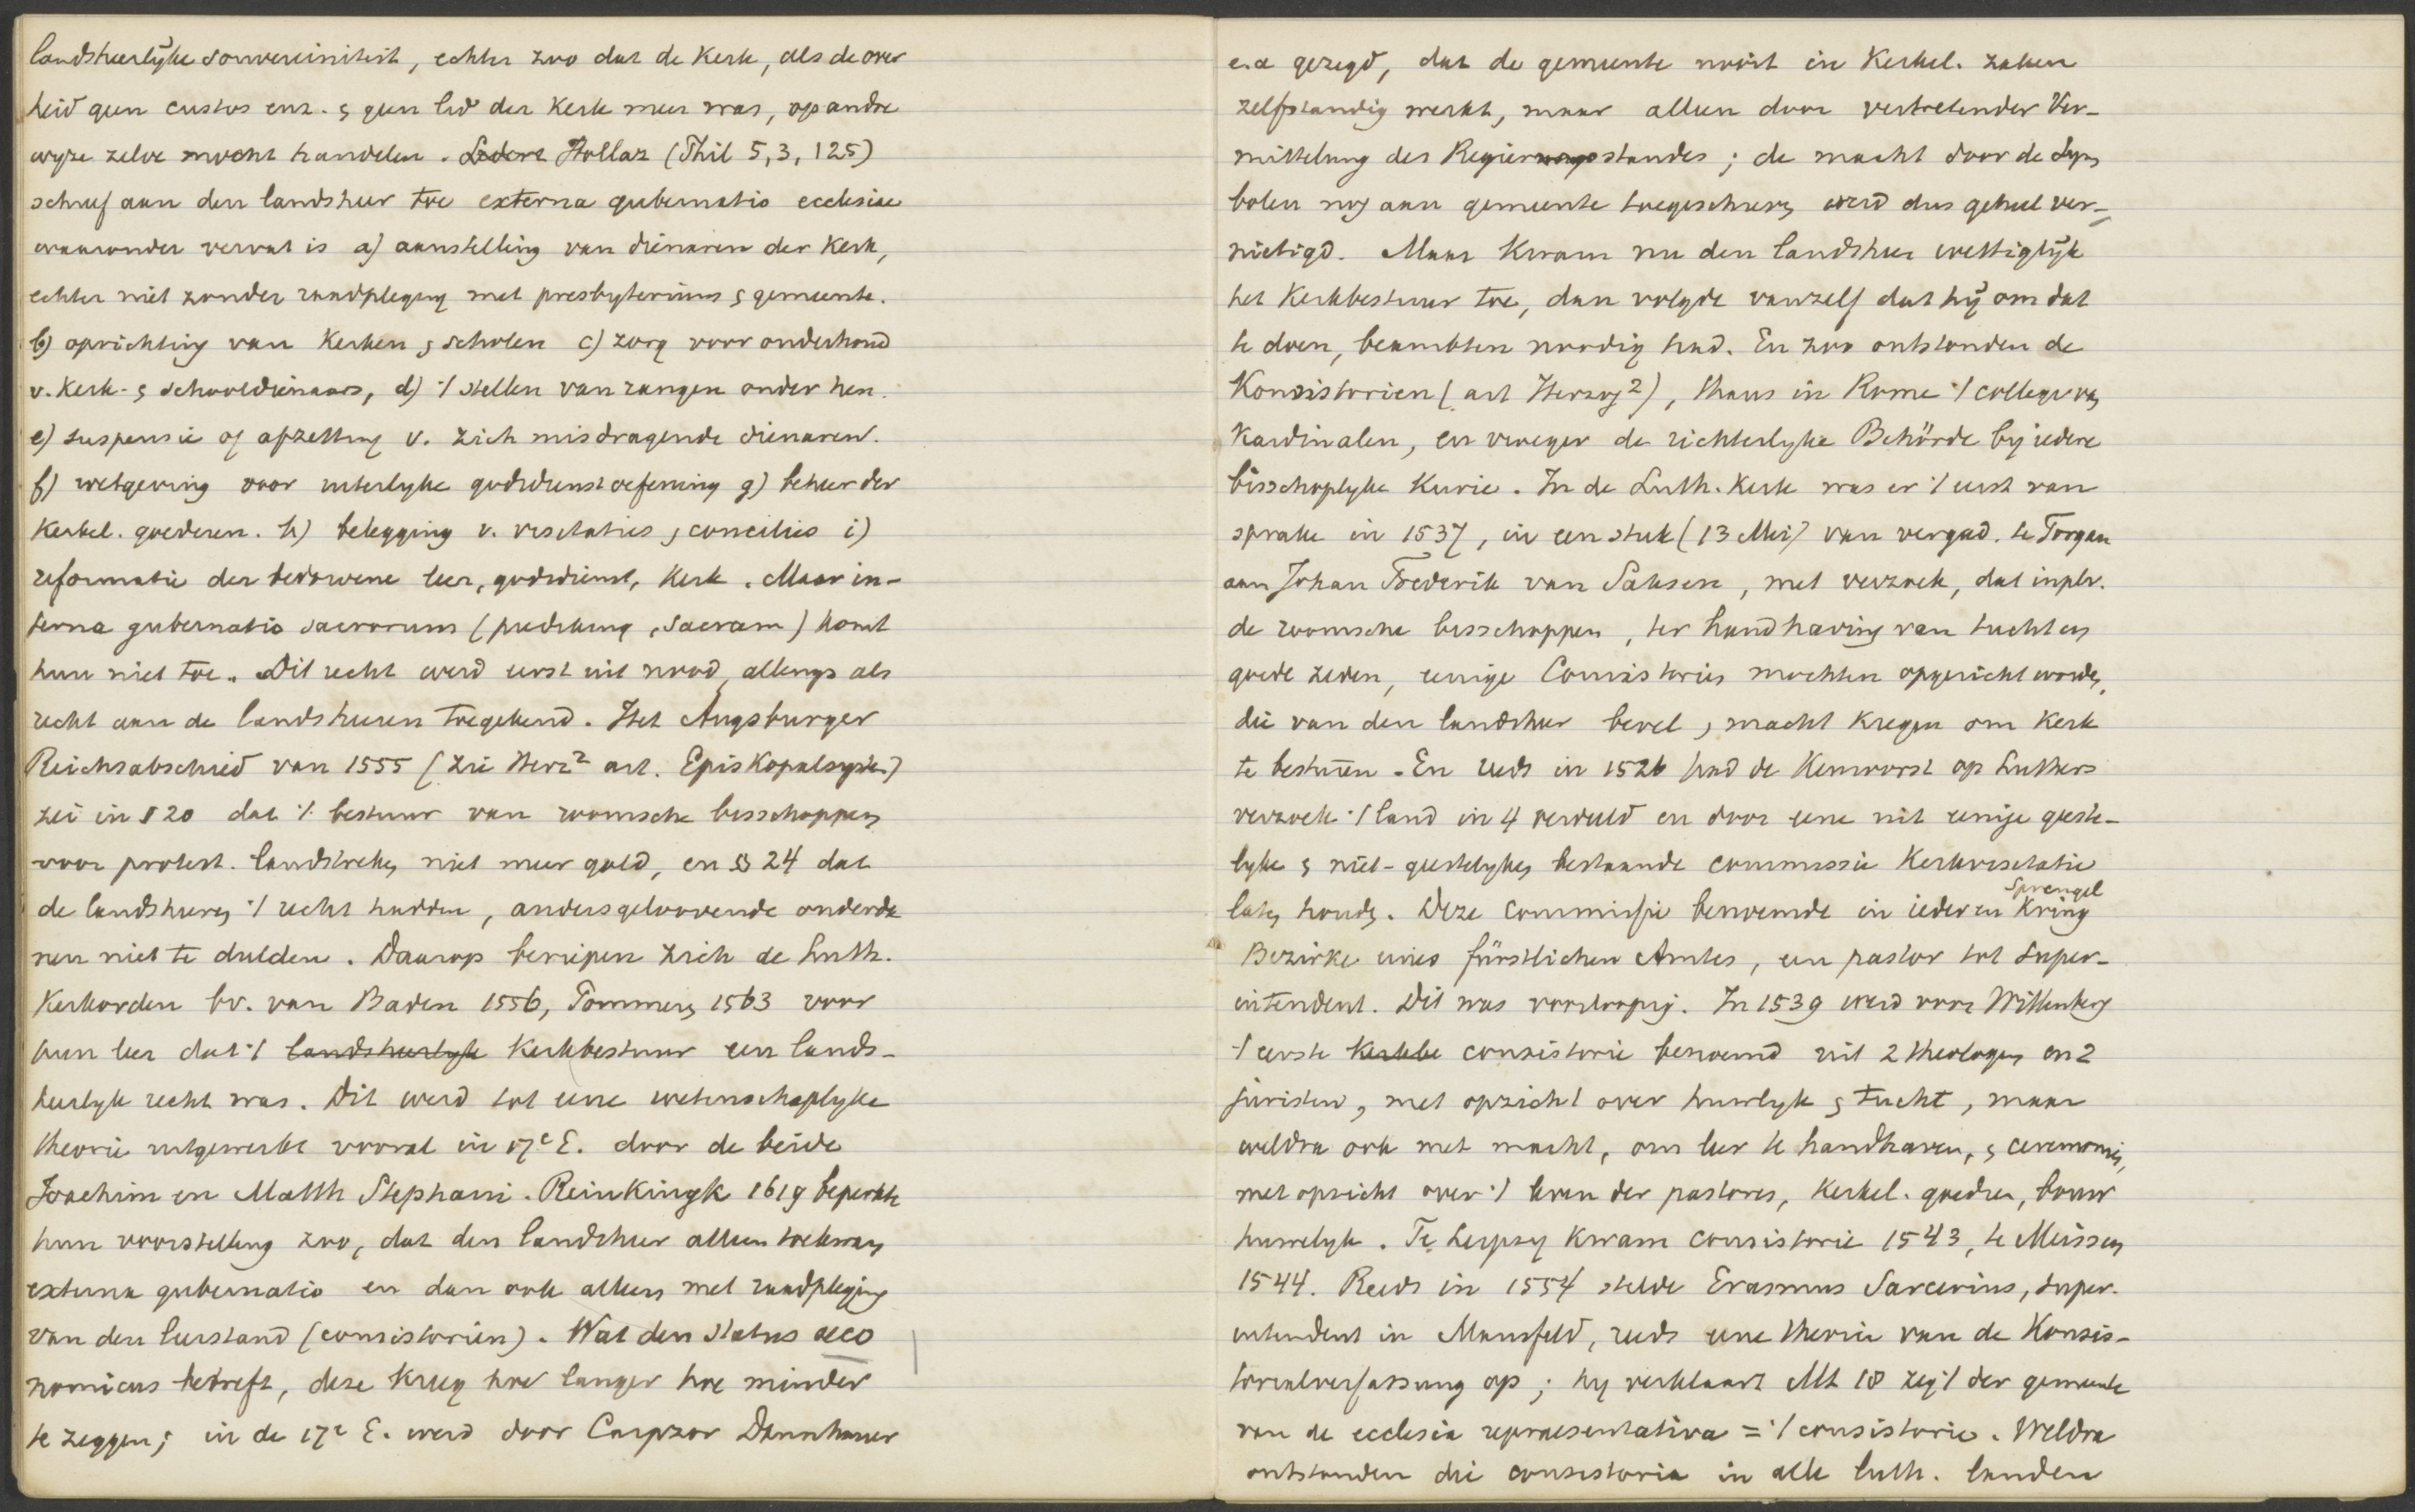 landsheerlijke souvereiniteit, echter zoo dat de Kerk, als de over
heid geen custos enz. & geen lid der Kerk meer was, op andre
wyze zelve mocht handelen. Hollaz (Thil 5, 3, 125)
schreef aan den landsheer toe externa gubernatio ecclesiae
waaronder vervat is a) aanstelling van dienaren der Kerk,
echter niet zonder raadpleging met presbyterium & gemeente.
b) oprichting van Kerken & scholen c) zorg voor onderhoud
v. Kerk- & schooldienaars, d) 't stellen van rangen onder hen.
e) suspensie of afzetting v. zich misdragende dienaren.
f) wetgeving voor uiterlyke godsdienstoefening g) beheer der
Kerkel. goederen. h) belegging v. visitaties & concilies i)
reformatie der bedorvene leer, godsdienst, Kerk. Maar in-
terna gubernatio sacrorum (prediking, sacram) komt
hun niet toe. Dit recht werd eerst uit nood, allengs als
recht aan de landsheeren toegekend. Het Augsburger
Reichsabschied van 1555 (zie Herz² art. Episkopalsystem)
zei in § 20 dat 't bestuur van roomsche bisschoppen
voor protest. landstreken niet meer gold, en § 24 dat
de landsheeren 't recht hadden, andersgeloovende onderda
nen niet te dulden. Daarop beriepen zich de Luth.
Kerkorden bv. van Baden 1556, Pommern 1563 voor
hun leer dat 't landsheerlyk Kerkbestuur een lands-
heerlyk recht was. Dit werd tot eene wetenschaplyke
theorie uitgewerkt vooral in 17e E. door de beide
Joachim en Matth Stephani. Reinkingk 1619 beperkte
hun voorstelling zoo, dat den landsheer alleen toekwam
externa gubernatio en dan ook alleen met raadpleging
van den leerstand (consistoriën). Wat den status oeco
nomicus betreft, deze kreeg hoe langer hoe minder
te zeggen; in de 17e E. werd door Carpzov Dannhauer
e.a gezegd, dat de gemeente nooit in Kerkel. zaken
zelfstandig werkt, maar alleen door vertretender Ver-
mittelung des Regierungsstandes; de macht door de Sym
bolen nog aan gemeente toegeschreven werd dus geheel ver-
nietigd. Maar kwam nu den landsheer wettiglijk
het Kerkbestuur toe, dan volgde vanzelf dat hij om dat
te doen, beambten noodig had. En zoo ontstonden de
Konsistorien (art Herzog²), thans in Rome 't college van
Kardinalen, en vroeger de richterlyke Behörde by iedere
bisschoplyke Kurie. In de Luth. Kerk was er 't eerst van
sprake in 1537, in een stuk (13 Mei) van vergad. te Torgau
aan Johan Frederik van Saksen, met verzoek, dat inplv.
de roomsche bisschoppen, ter handhaving van tucht en
goede zeden, eenige Consistories mochten opgericht worden,
die van den landsheer bevel & macht kregen om Kerk
te bestuuen. En reeds in 1526 had de Keurvorst op Luthers
verzoek 't land in 4 verdeeld en door eene uit eenige geeste-
lyke & niet-geestelyken bestaande commissie Kerkvisitatie
laten houden. Deze commissie benoemde in iederen Kring Sprengel
Bezirke eines fürstlichen Amtes, een pastor tot super-
intendent. Dit was voorloopig. In 1539 werd voor Wittenberg
't eerste Kerkbe consistorie benoemd uit 2 theologen en 2
juristen, met opzicht over huwelyk & tucht, maar
weldra ook met macht, om leer te handhaven, & ceremonies,
met opzicht over 't leven der pastores, Kerkel. goedren, bouw
huwelyk. Te Leipzig kwam consistorie 1543, te Meissen
1544. Reeds in 1554 stelde Erasmus Sarcerius, super-
intendent in Mansfeld, reeds eene theorie van de Konsis-
torialverfassung op; hy verklaart Mt 18 zeg 't der gemeente
van de ecclesia repraesentativa = 't consistorie. Weldra
ontstonden die consistoria in alle luth. landen